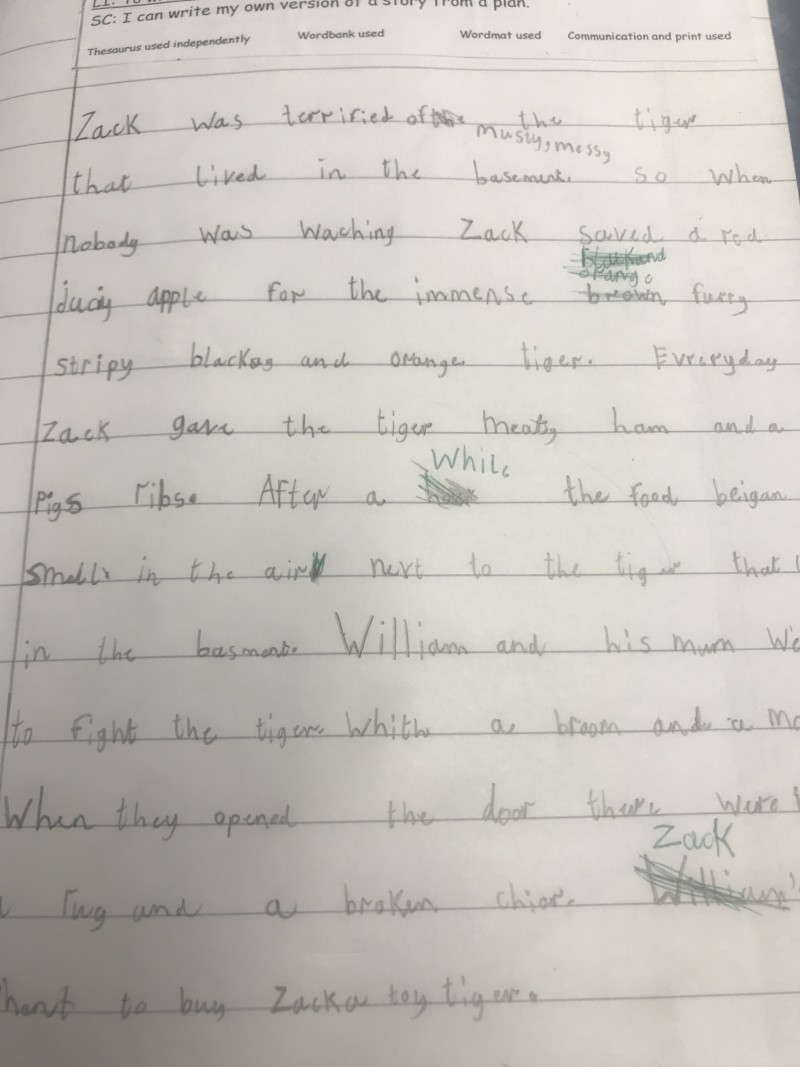 SC: I can write my own version of a story from a plan.
Thesaurus used independently Wordbank used Wordmat used Communication and print used
Zack was terrified of the tiger
musty, messy
that lived in the basement. so when
nobody was waching Zack saved a red
orange
juciy apple for the immense brown furry
stripy blackas and orange tiger. Evreryday
Zack gave the tiger meaty ham and a
While
pigs ribs. After a the food beigan
smells in the air next to the tiger that
in the basment. William and his mum
to fight the tiger whith a broom and a
When they opened the door there were
Zack
rug and a broken chior.
to buy Zack a toy tiger.